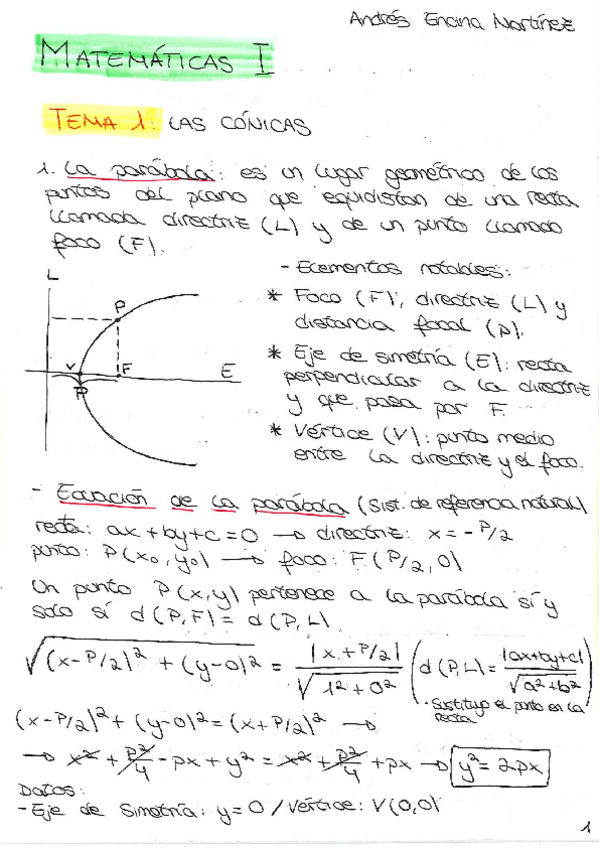 Andrés Encina Martínez
MATEMÁTICAS I
TEMA 1: LAS CÓNICAS
1. La parábola: es un lugar geométrico de los
puntos del plano que equidistan de una recta
llamada directriz (L) y de un punto llamado
foco (F).
L
P
V
F
E
P
- Elementos notables:
* Foco (F), directriz (L) y
distancia focal (p).
* Eje de simetría (E): recta
perpendicular a la directriz
y que pasa por F.
* Vértice (V): punto medio
entre la directriz y el foco.
- Ecuación de la parábola (Sist. de referencia natural)
recta: ax + by + c = 0 → directriz: x = - P/2
punto: P(x₀, y₀) → foco: F(P/2, 0)
Un punto P(x,y) pertenece a la parábola sí y
solo sí d(P,F) = d(P,L).
√((x-P/2)² + (y-0)²) = |x + P/2| / √(1² + 0²) (d(P,L) = |ax+by+c| / √(a²+b²)
· Sustituyo el punto en la
recta)
(x-P/2)² + (y-0)² = (x+P/2)² →
→ x² + p²/4 - px + y² = x² + p²/4 + px → y² = 2px
Datos:
- Eje de Simetría: y = 0 / Vértice: V(0,0
1